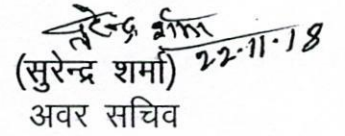 सुरेन्द्र शर्मा
22.11.18
(सुरेन्द्र शर्मा)
अवर सचिव